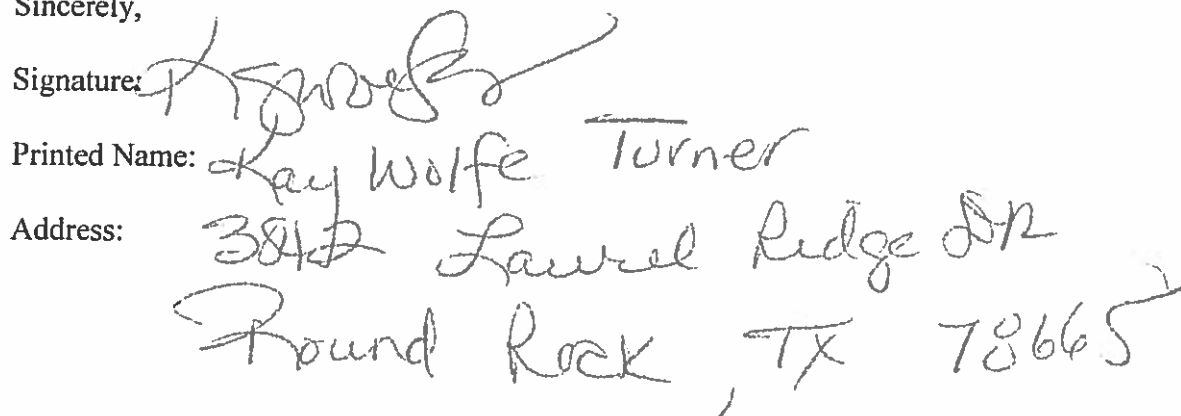 Sincerely,
Signature:
Printed Name: Kay Wolfe Turner
Address: 3842 Laurel Ridge DR
Round Rock, TX 78665